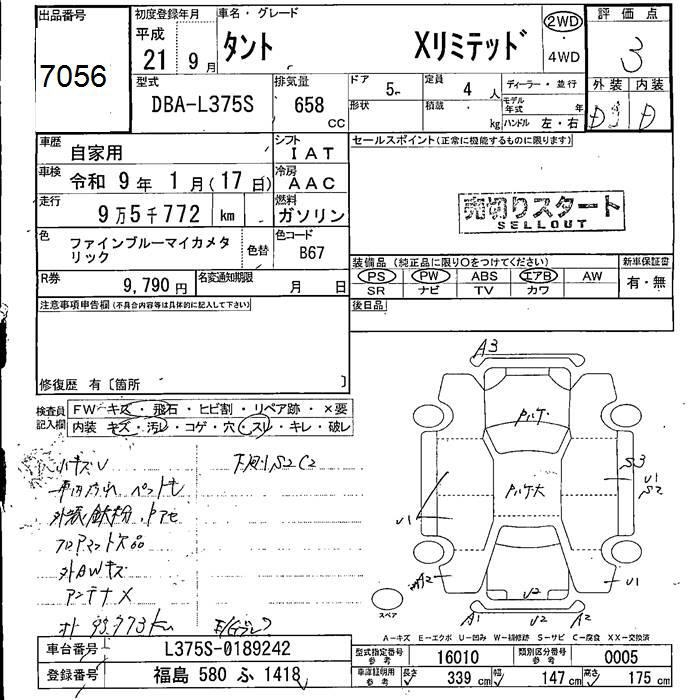 出品番号
7056
初度登録年月
平成
21 9 月
車名・グレード
タント Xリミテッド
2WD
4WD
評価点
3
外装 内装
D D
型式
DBA-L375S
排気量
658
CC
ドア 5
定員 4 人
形状 積載 kg
ディーラー・並行
モデル年式 年
ハンドル 左・右
車歴 自家用
シフト IAT
車検 令和 9 年 1 月(17 日)
冷房 AAC
走行 9万5千772 km
燃料 ガソリン
色 ファインブルーマイカメタリック 色替
色コード B67
R券 9,790 円
名変通知期限 月 日
セールスポイント(正常に機能するものに限ります)
売切りスタート
SELLOUT
装備品(純正品に限り○をつけてください)
PS PW ABS エアB AW
SR ナビ TV カワ
新車保証書
有・無
後日品
注意事項申告欄(不具合内容等は具体的に記入して下さい)
修復歴 有〔箇所 〕
検査員記入欄
FW キズ・飛石・ヒビ割・リペア跡・×要
内装 キズ・汚レ・コゲ・穴・スレ・キレ・破レ
小キズU
下廻りS2C2
外装鉄粉
フロアマット欠品
外AWキズ
アンテナX
A3
S3
U1
S2
U1
A2
U1
U2
A1 U2 A2
スペア
A-キズ E-エクボ U-凹み W-補修跡 S-サビ C-腐食 XX-交換済
車台番号 L375S-0189242
登録番号 福島 580 ふ 1418
型式指定番号 参考 16010
類別区分番号 参考 0005
車庫証明用 参考 長さ 339 cm 幅 147 cm 高さ 175 cm